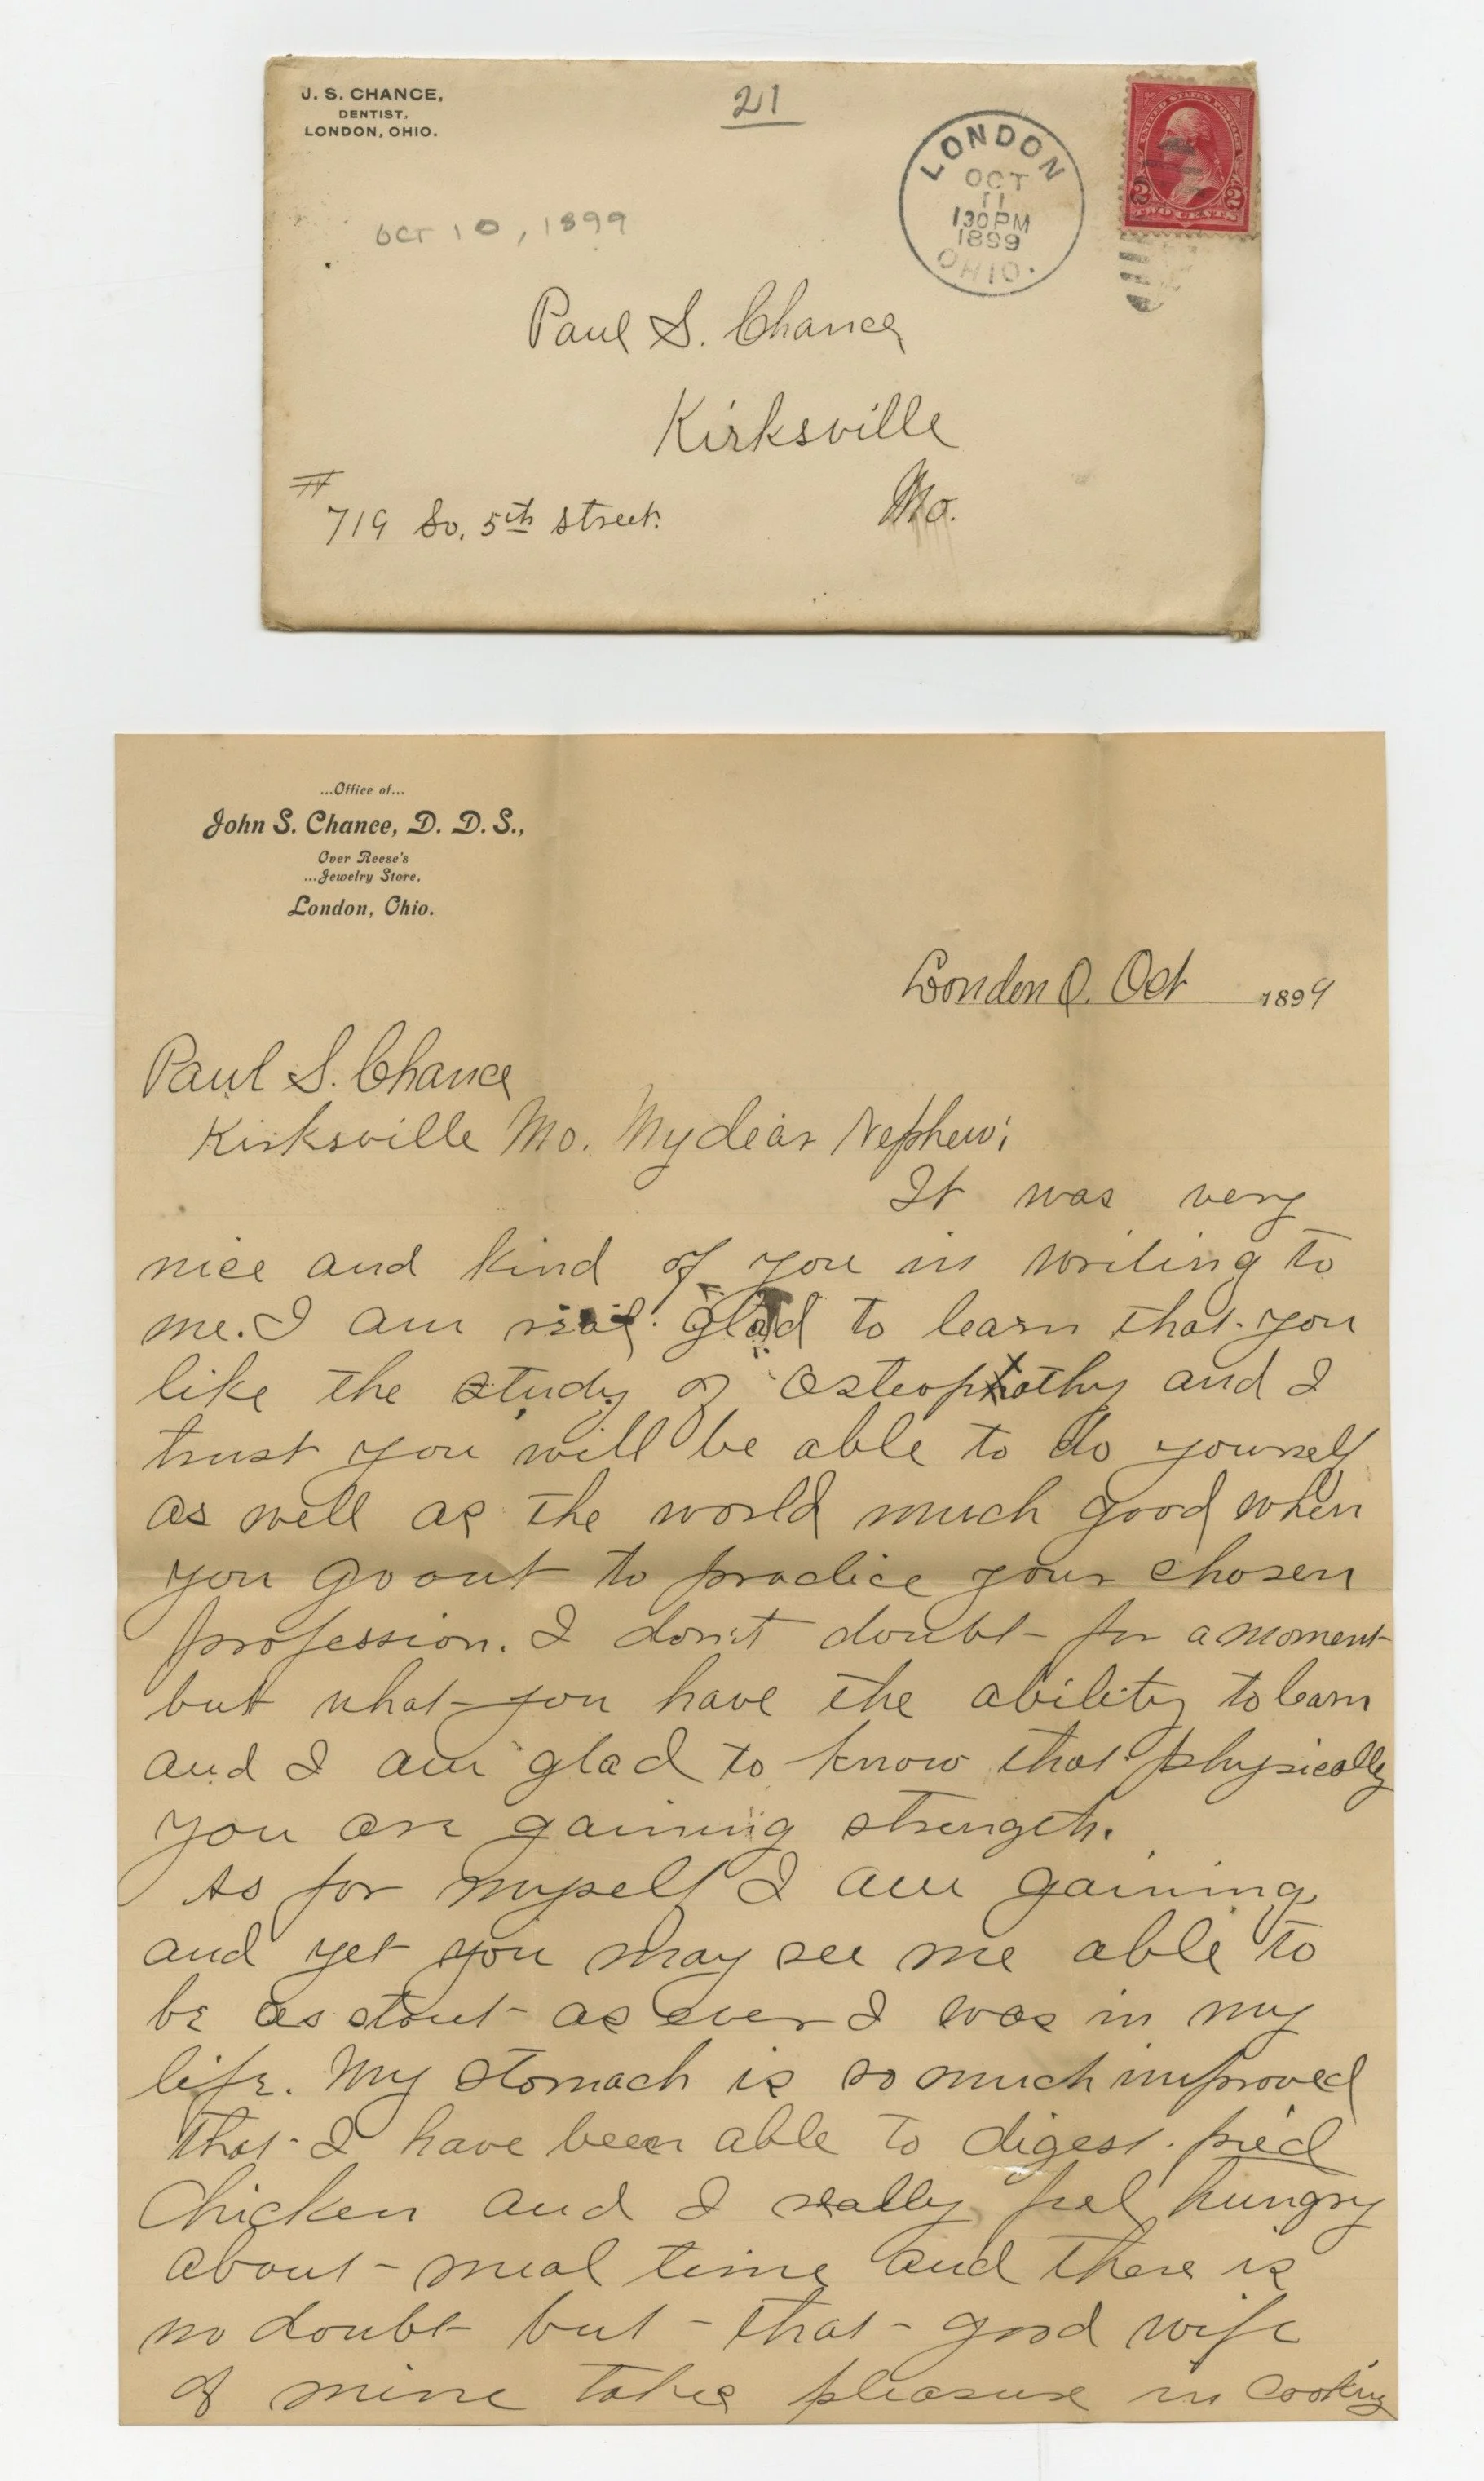 J. S. CHANCE,
DENTIST,
LONDON, OHIO.
21
LONDON
OCT
11
130PM
1899
OHIO.
UNITED STATES POSTAGE
2 2
TWO CENTS
OCT 10, 1899
Paul S. Chance
Kirksville
Mo.
#
719 So. 5th Street.
...Office of...
John S. Chance, D. D. S.,
Over Reese's
...Jewelry Store,
London, Ohio.
London O. Oct 1899
Paul S. Chance
Kirksville Mo. My dear Nephew;
It was very
nice and kind of you in writing to
me. I am real glad to learn that you
like the study of Osteopathy and I
trust you will be able to do yourself
as well as the world much good when
you go out to practice your chosen
profession. I don't doubt for a moment
but what you have the ability to learn
and I am glad to know that physically
you are gaining strength.
As for myself I am gaining
and yet you may see me able to
be as stout as ever I was in my
life. My stomach is so much improved
that I have been able to digest fried
Chicken and I really feel hungry
about meal time and there is
no doubt but that good wife
of mine takes pleasure in cooking